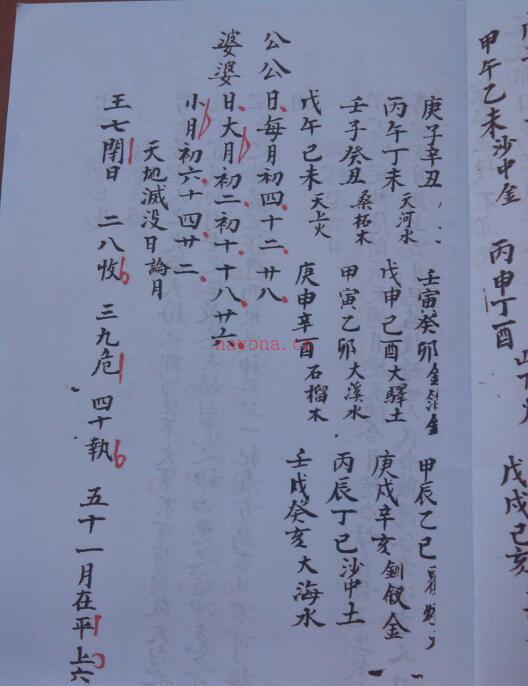 戊戌己亥
甲午乙未沙中金 丙申丁酉
庚子辛丑 壬寅癸卯金箔金 甲辰乙巳
丙午丁未天河水 戊申己酉大驛土 庚戌辛亥釧釵金
壬子癸丑桑柘木 甲寅乙卯大溪水 丙辰丁巳沙中土
戊午己未天上火 庚申辛酉石榴木 壬戌癸亥大海水
公公日每月初四十二廿八
婆婆日大月初二初十十八廿六
小月初六十四廿二
天地滅没日論月
王七閉日 二八收 三九危 四十執 五十一月在平上六
nayona.cn